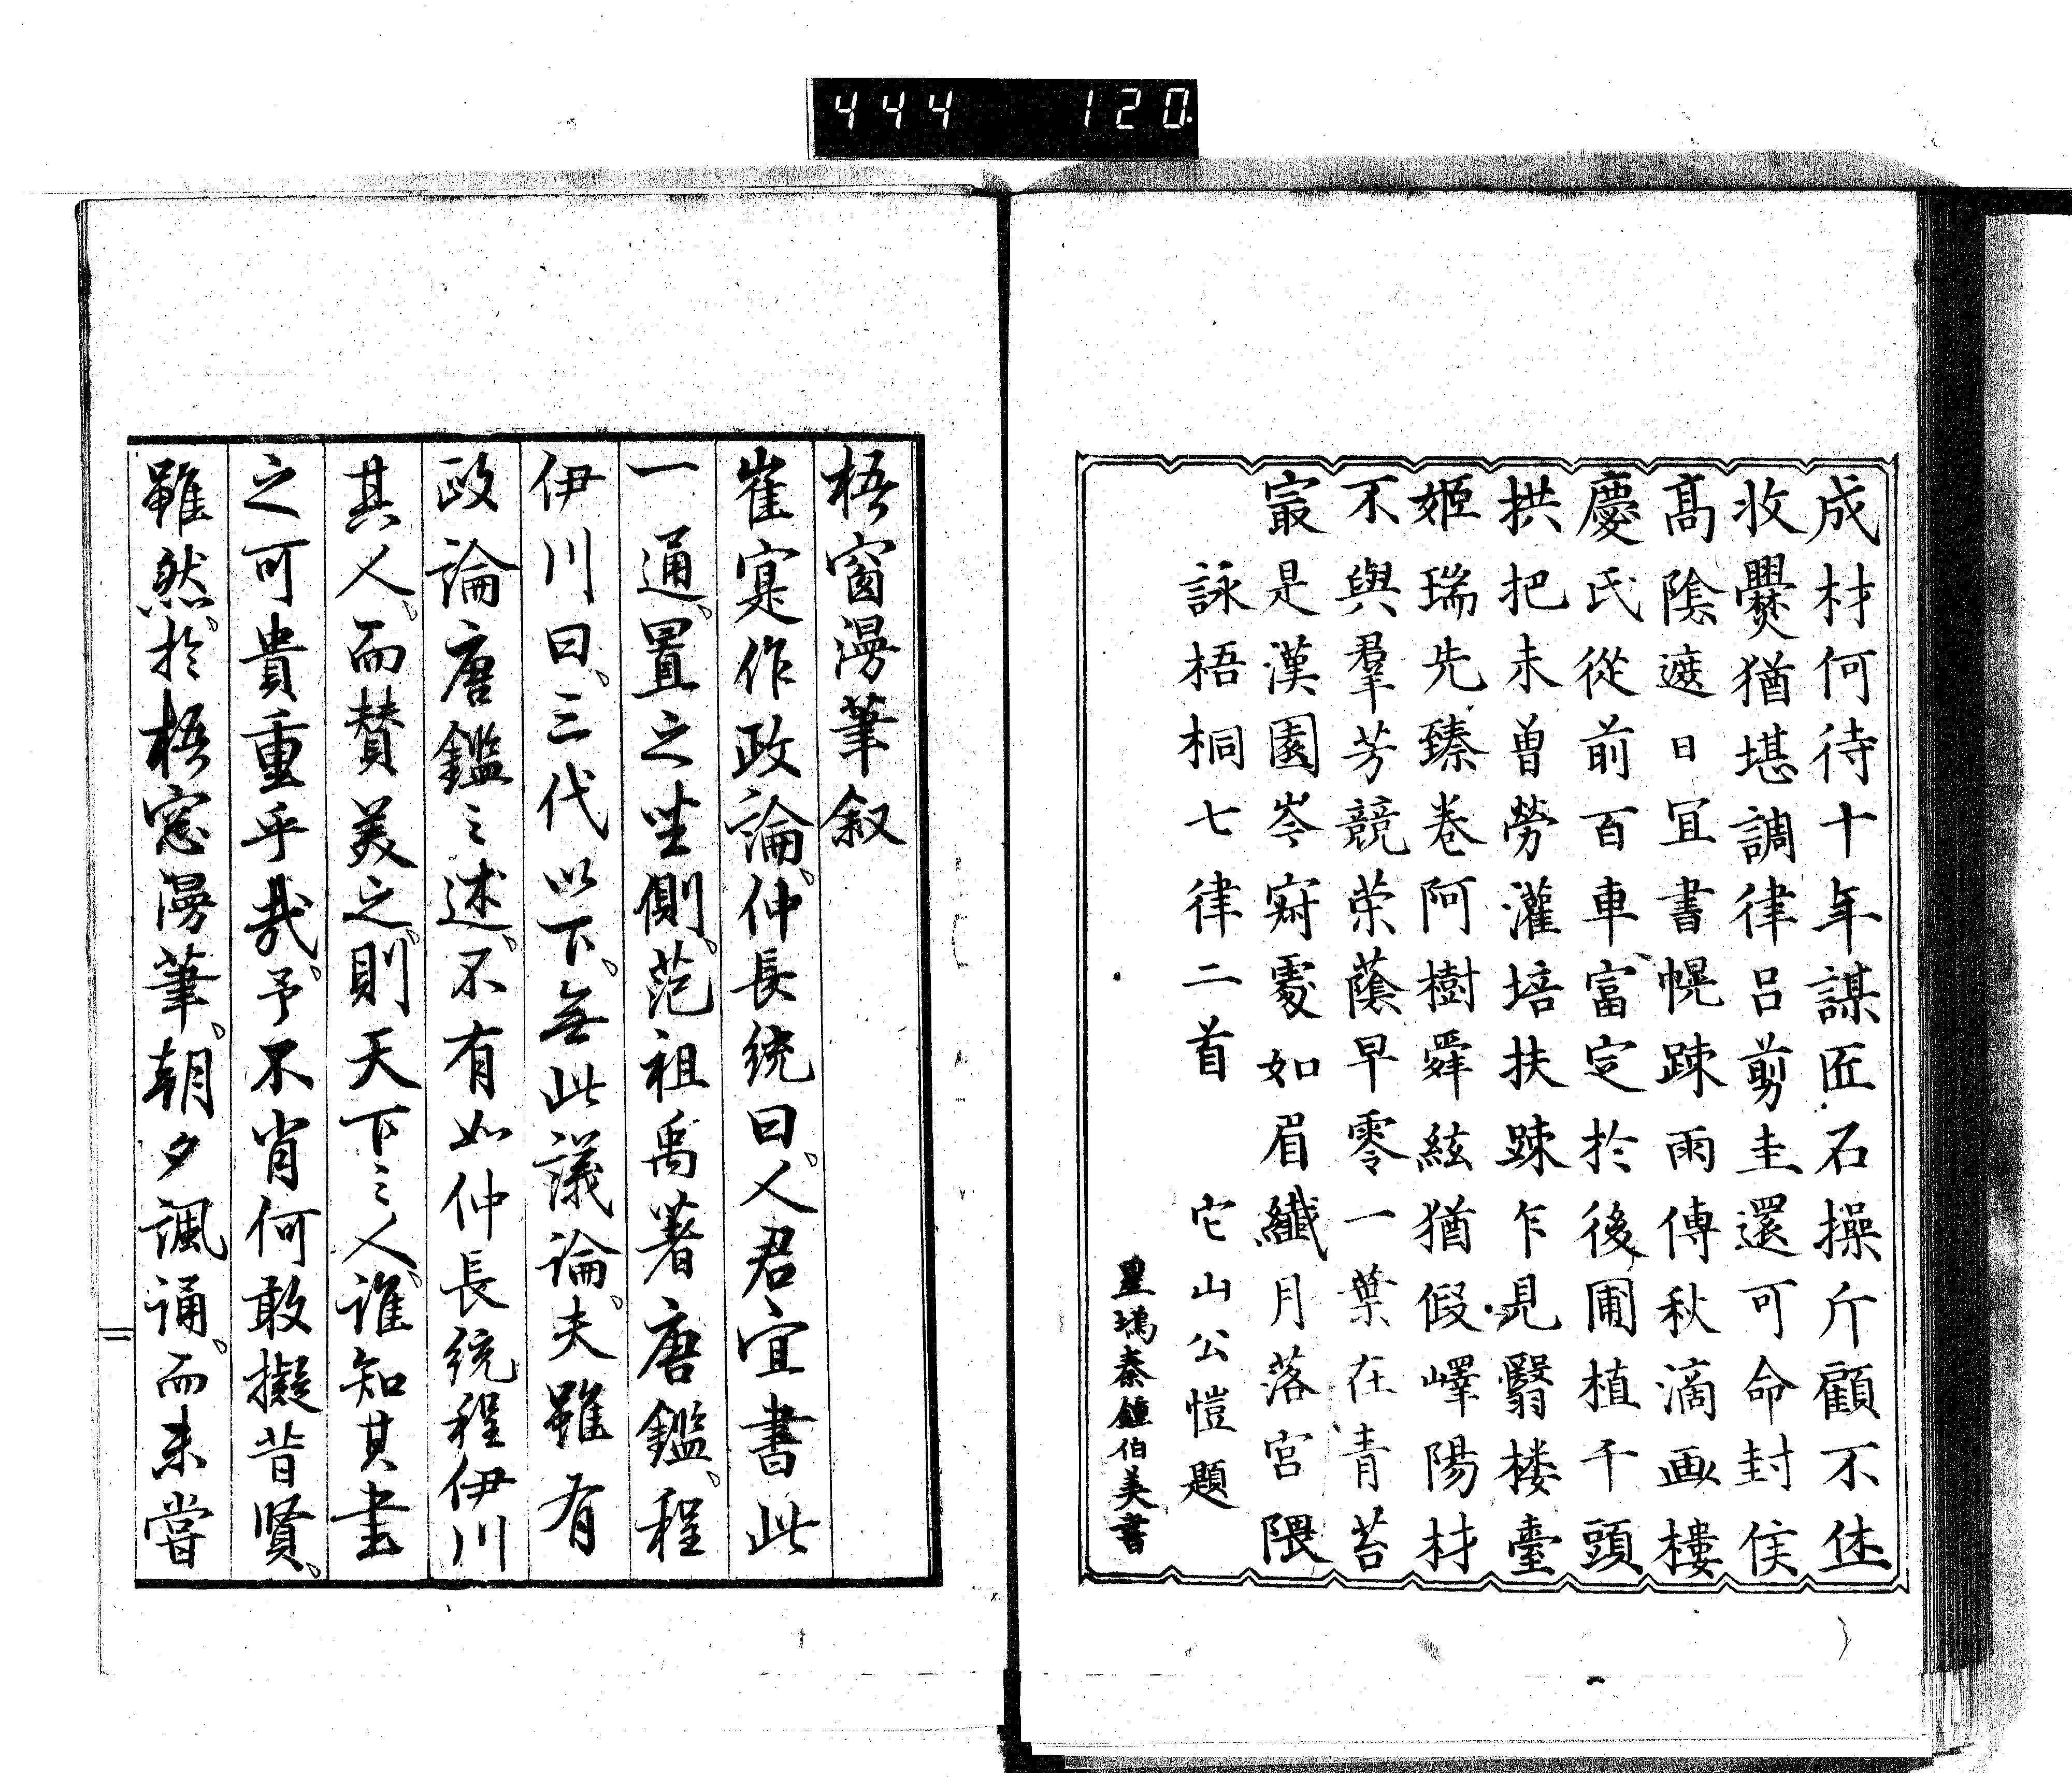 444 120
成材何待十年謀匠石操斤顧不休
收爨猶堪調律呂剪圭還可命封侯
髙陰遮日冝書幌踈雨傳秋滴画樓
慶氏從前百車富定於後圃植千頭
拱把未曽勞灌培扶踈乍見翳楼臺
姬瑞先臻卷阿樹舜絃猶假嶧陽材
不與羣芳競荣蔭早零一葉在青苔
㝡是漢園岑𡧯䖏如眉纎月落宮隈
詠梧桐七律二首 它山公愷題
星塢秦鍾伯美書
梧窗漫筆叙
崔寔作政論、仲長統曰、人君宜書此
一通、置之坐側、范祖禹著唐鑑、程
伊川曰、三代以下、無此議論、夫雖有
政論唐鑑之述、不有如仲長統程伊川
其人、而賛美之、則天下之人、誰知其書
之可貴重乎哉、予不肖何敢擬昔賢、
雖然、於梧窓漫筆、朝夕諷誦、而未嘗
二